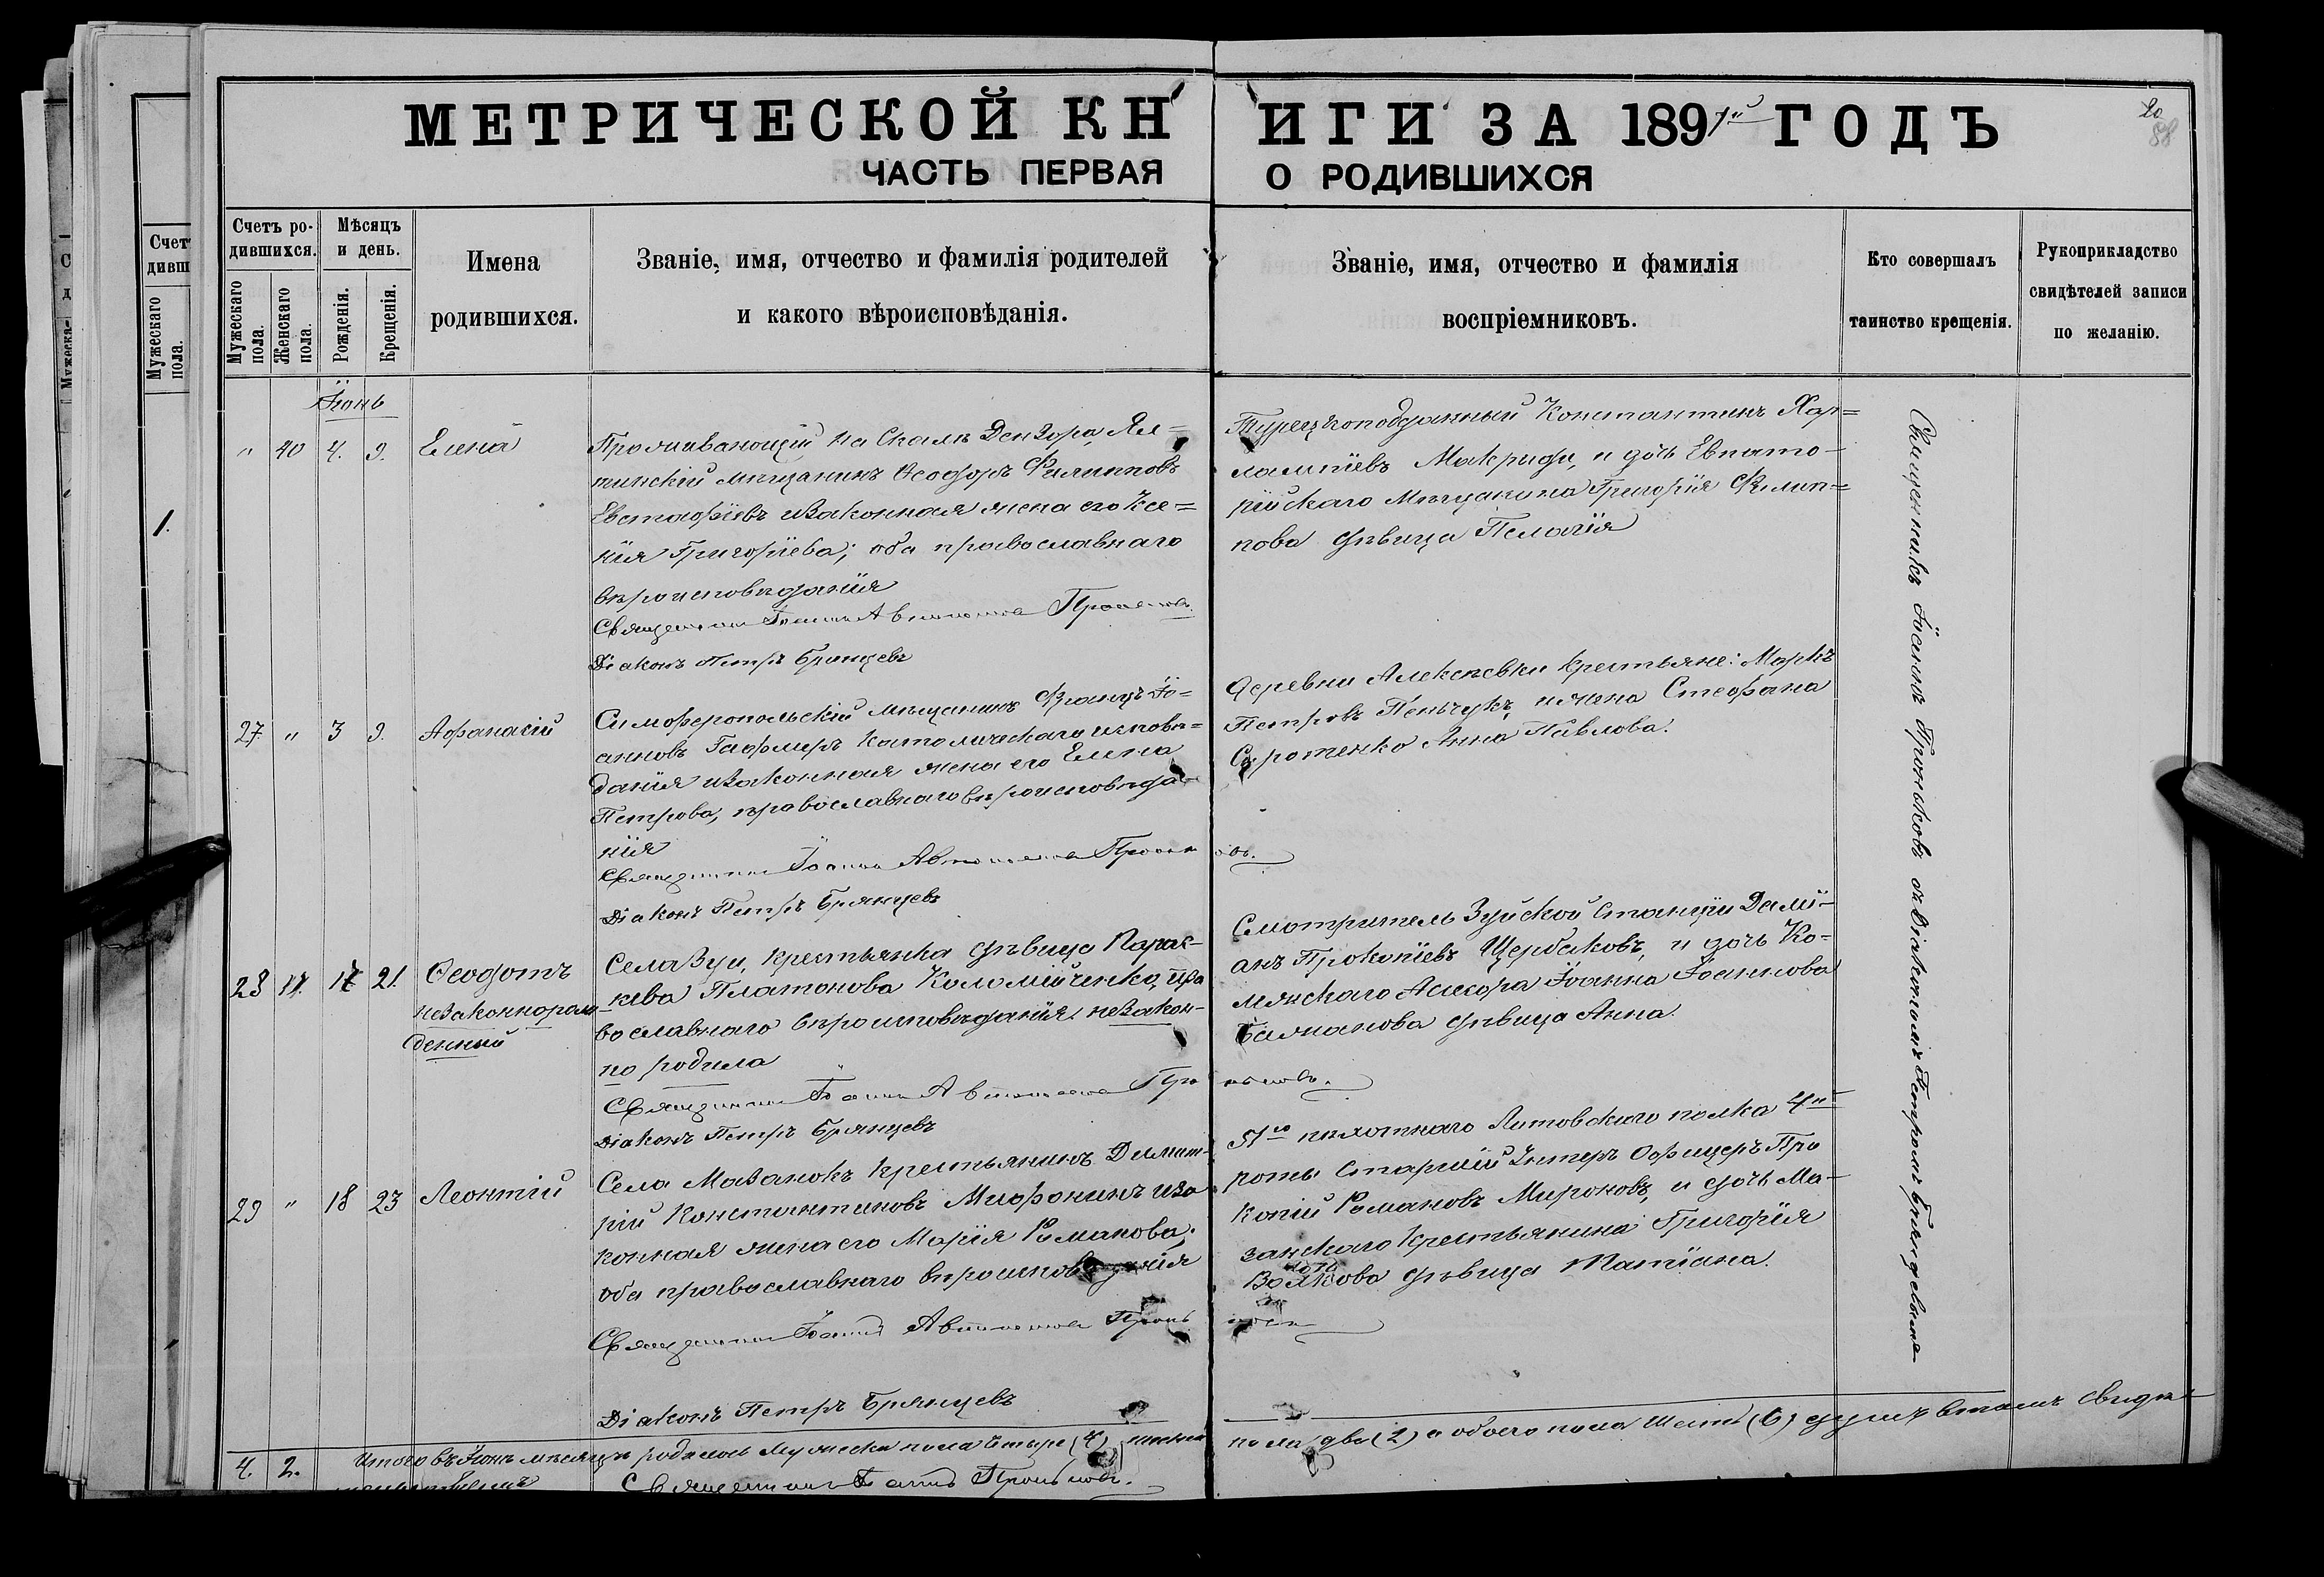 МЕТРИЧЕСКОЙ КНИГИ ЗА 1891й ГОДЪ
20
88
ЧАСТЬ ПЕРВАЯ О РОДИВШИХСЯ
Счетъ родившихся.
Мѣсяцъ и день.
Мужескаго пола.
Женскаго пола.
Рожденія.
Крещенія.
Имена родившихся.
Званіе, имя, отчество и фамилія родителей
и какого вѣроисповѣданія.
Званіе, имя, отчество и фамилія
воспріемниковъ.
Кто совершалъ
таинство крещенія.
Рукоприкладство
свидѣтелей записи
по желанію.
Іюнь
" 40 4. 9. Елена
Проживающій на Скалѣ Ял=
тинскій мѣщанинъ Ѳеодоръ Филипповъ
Евстафіевъ изаконная жена его Ксе=
нія Григоріева; оба православнаго
вѣроисповѣданія
Священникъ Іоаннъ
Діаконъ Петръ Брянцевъ
Турецкоподданный Константинъ Хар=
лампіевъ Макриди, и дочь Евпато-
рійскаго Мѣщанина Григорія Филип=
пова дѣвица Пелагія
27. " 3 9. Афанасій
Симферопольскій мѣщанинъ Францъ Іо=
анновъ Гафмеръ Католическаго исповѣ=
данія изаконная жена его Елена
Петрова, православнаго вѣроисповѣда-
нія
Священникъ Іоаннъ
Діаконъ Петръ Брянцевъ
деревни Алексѣевки крестьяне: Маркъ
Петровъ Пеньчукъ, и жена Стефана
Сиротенко Анна Павлова.
28 17 21. Ѳеодотъ
незаконнорож-
денный
Села Зуи, крестьянка дѣвица Парас-
кева Платонова Коломійченко, пра
вославнаго вѣроисповѣданія, незакон-
но родила
Священникъ Іоаннъ
Діаконъ Петръ Брянцевъ
Смотритель Зуйской Станціи Дамі-
анъ Прокопіевъ Щербаковъ, и дочь Ко-
лежскаго Асесора Іоанна Іоаннова
дѣвица Анна.
29 " 18 23 Леонтій
Села Мазанокъ крестьянинъ Димит-
рій Константиновъ Миронинъ иза
конная жена его Марія Романова;
оба православнаго вѣроисповѣданія
Священникъ Іоаннъ
Діаконъ Петръ Брянцевъ
51го пѣхотнаго Литовскаго полка 4й
роты Старшій Унтеръ Офицеръ Про
копій Романовъ Мироновъ, и дочь Ма-
занскаго крестьянина Григорія
Волкова дѣвица Татіана.
Священникъ Іоаннъ Проньковъ съ Діакономъ Петромъ Брянцевымъ
4. 2. Итого въ Іюнѣ мѣсяцѣ родилось Мужеска пола Четыре (4) женска
пола два (2) а обоего пола шесть (6) душъ въ томъ свидѣ-
Священникъ Іоаннъ Проньковъ.
Счет
дивш
Мужескаго пола.
1.